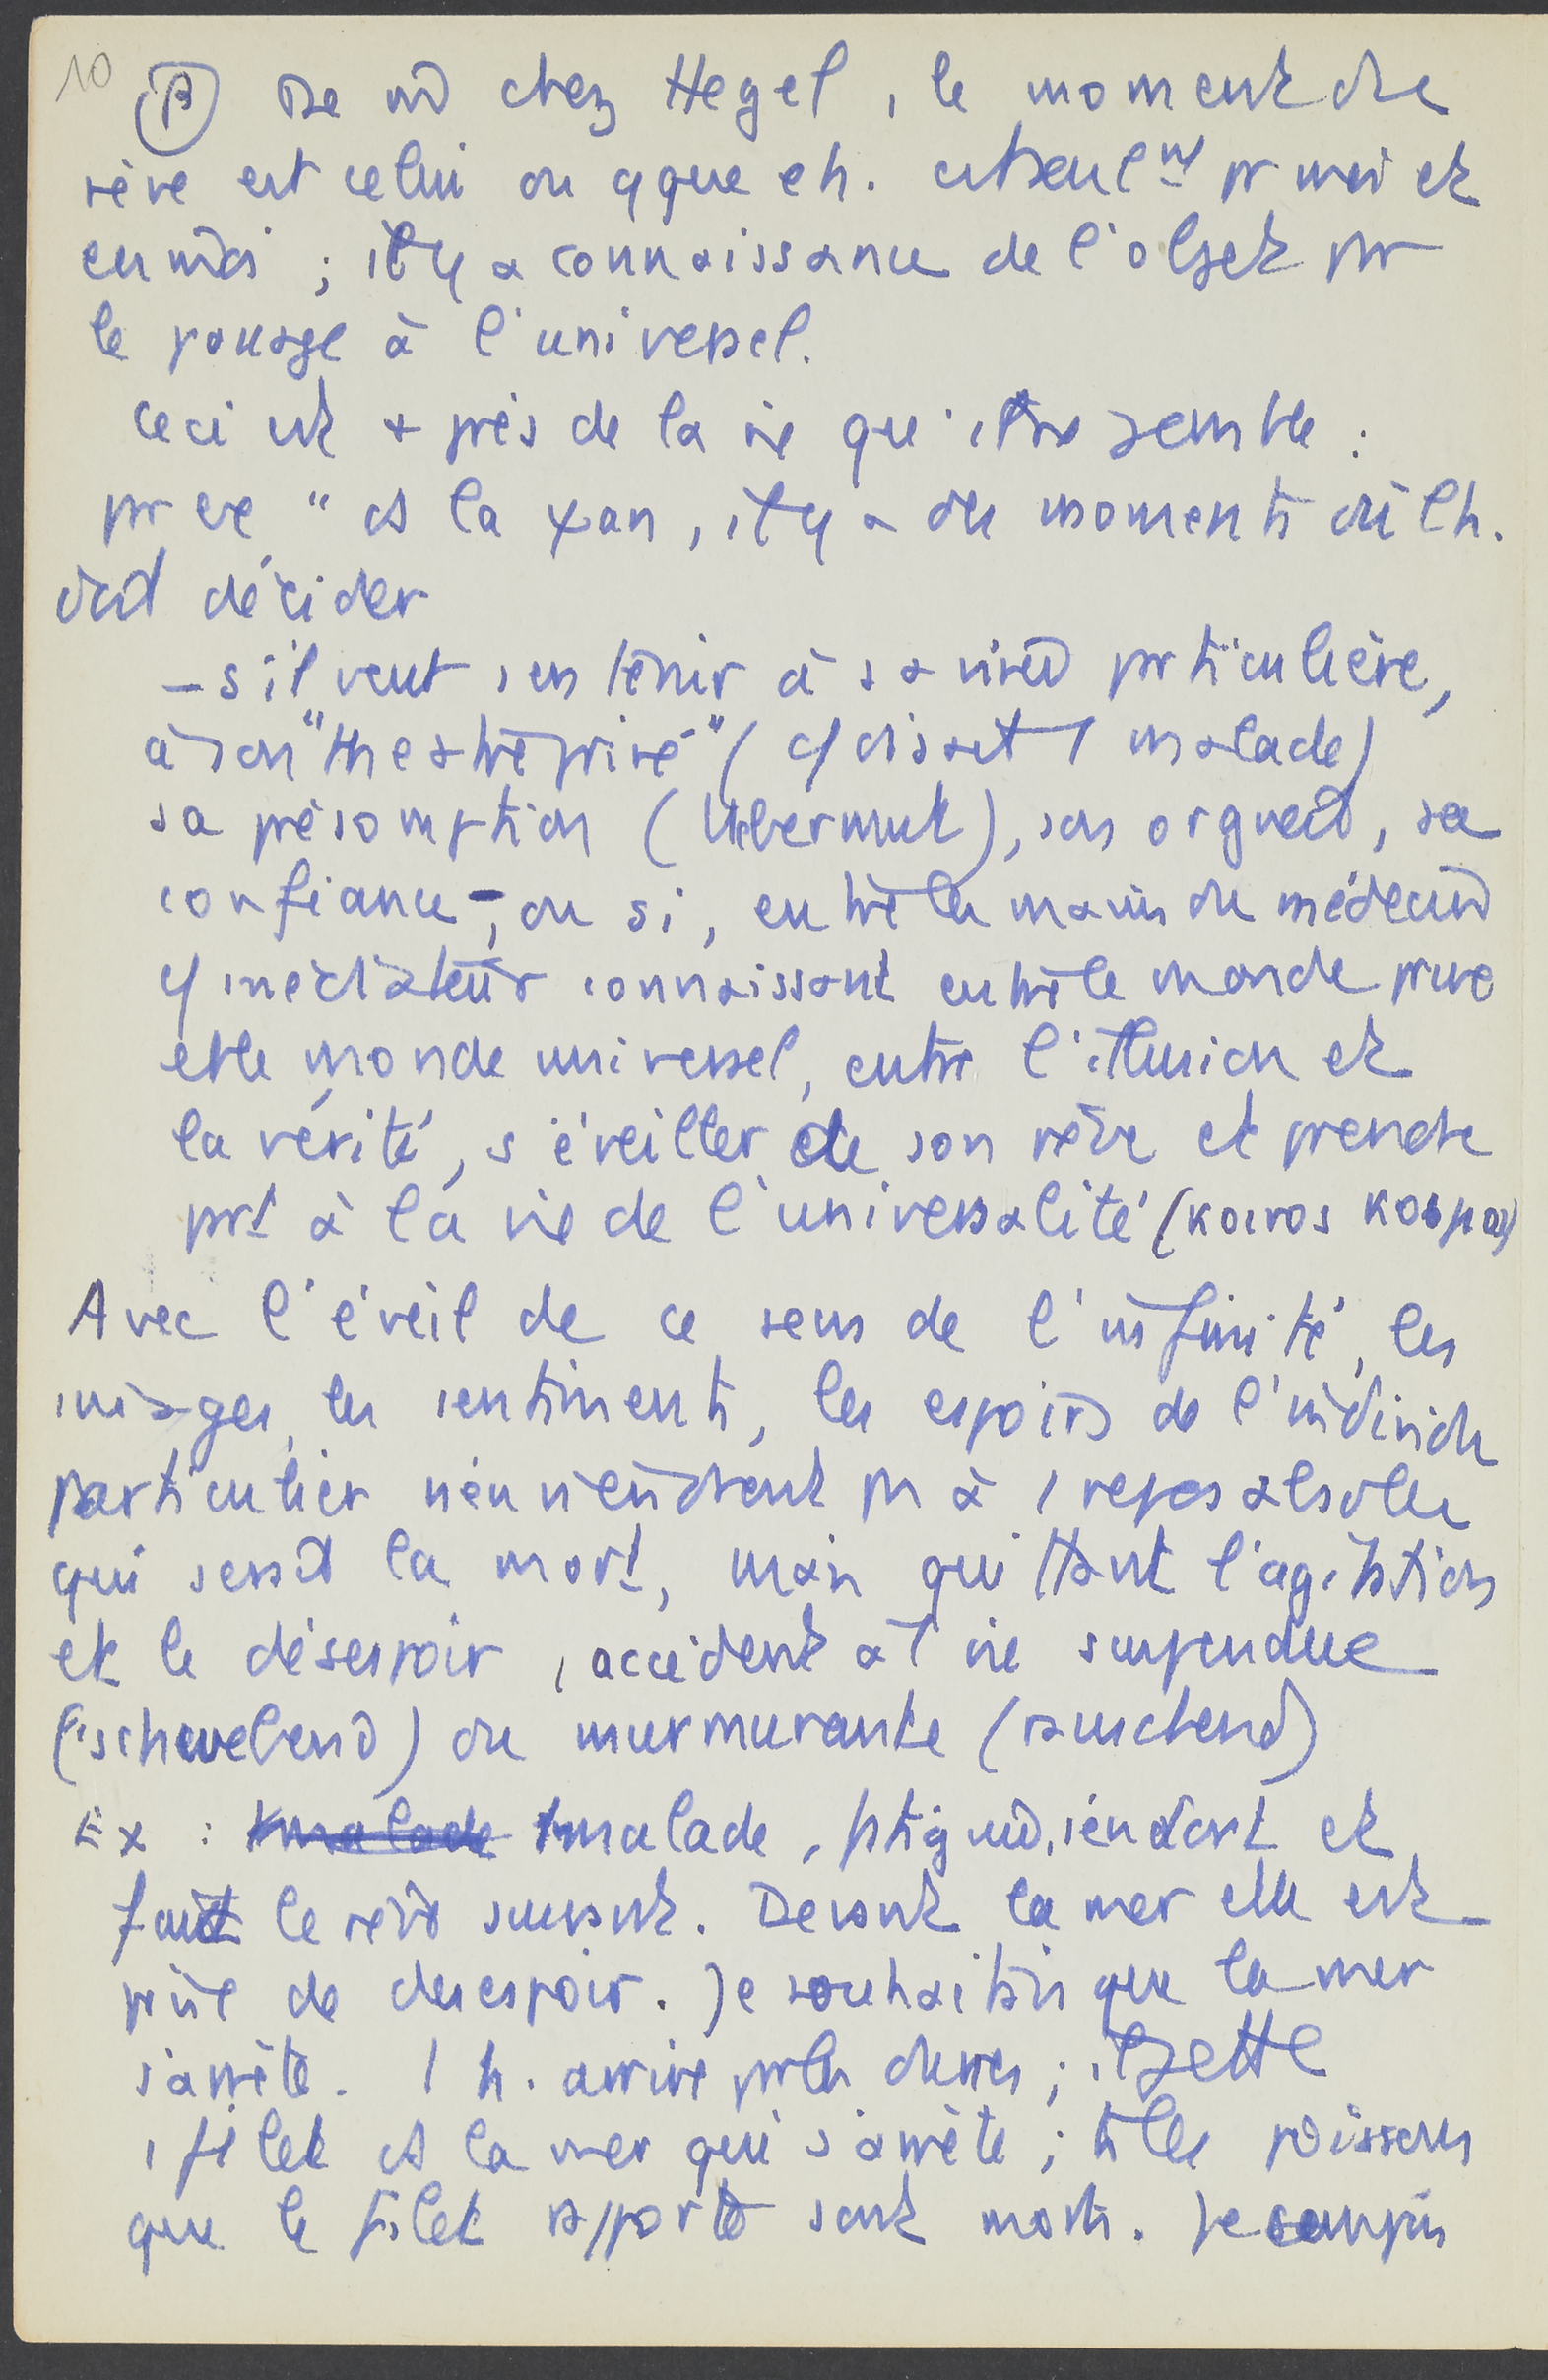 10 (B) De m̂ chez Hegel, le moment du
rêve est celui où qque ch. est seulnt pr moi et
en moi ; il y a connaissance de l'objet par
le passage à l'universel.
Ceci est + près de la vie qu'il ne semble :
pr ex " ds la , il y a des moments où l'h.
doit décider
- s'il veut s'en tenir à sa vision particulière,
à son "theatre privé" (c/ disait 1 malade)
sa présomption (Übermut), son orgueil, sa
confiance -, ou si, entre les mains du médecin
c/ médiateur connaissant entre le monde privé
et le monde universel, entre l'illusion et
la vérité, s'éveiller de son rêve et prendre
prt à la vie de l'universalité (κοινος κοσμος)
Avec l'éveil de ce sens de l'infinité, les
images, les sentiments, les espoirs de l'individu
particulier n'en viendront pas à 1 repos absolu
qui serait la mort, mais quittant l'agitation
et le désespoir, accèdent à 1 vie suspendue
(schwebend) ou murmurante (rauschend)
Ex : 1 malade 1 malade, fatiguée, s'endort et
fait le rêve suivant. Devant la mer elle est
prise de desespoir. Je souhaitais que la mer
s'arrête. 1 h. arrive par les dunes ; il jette
1 filet ds la mer qui s'arrête ; ts les poissons
que le filet rapporte sont morts. Je